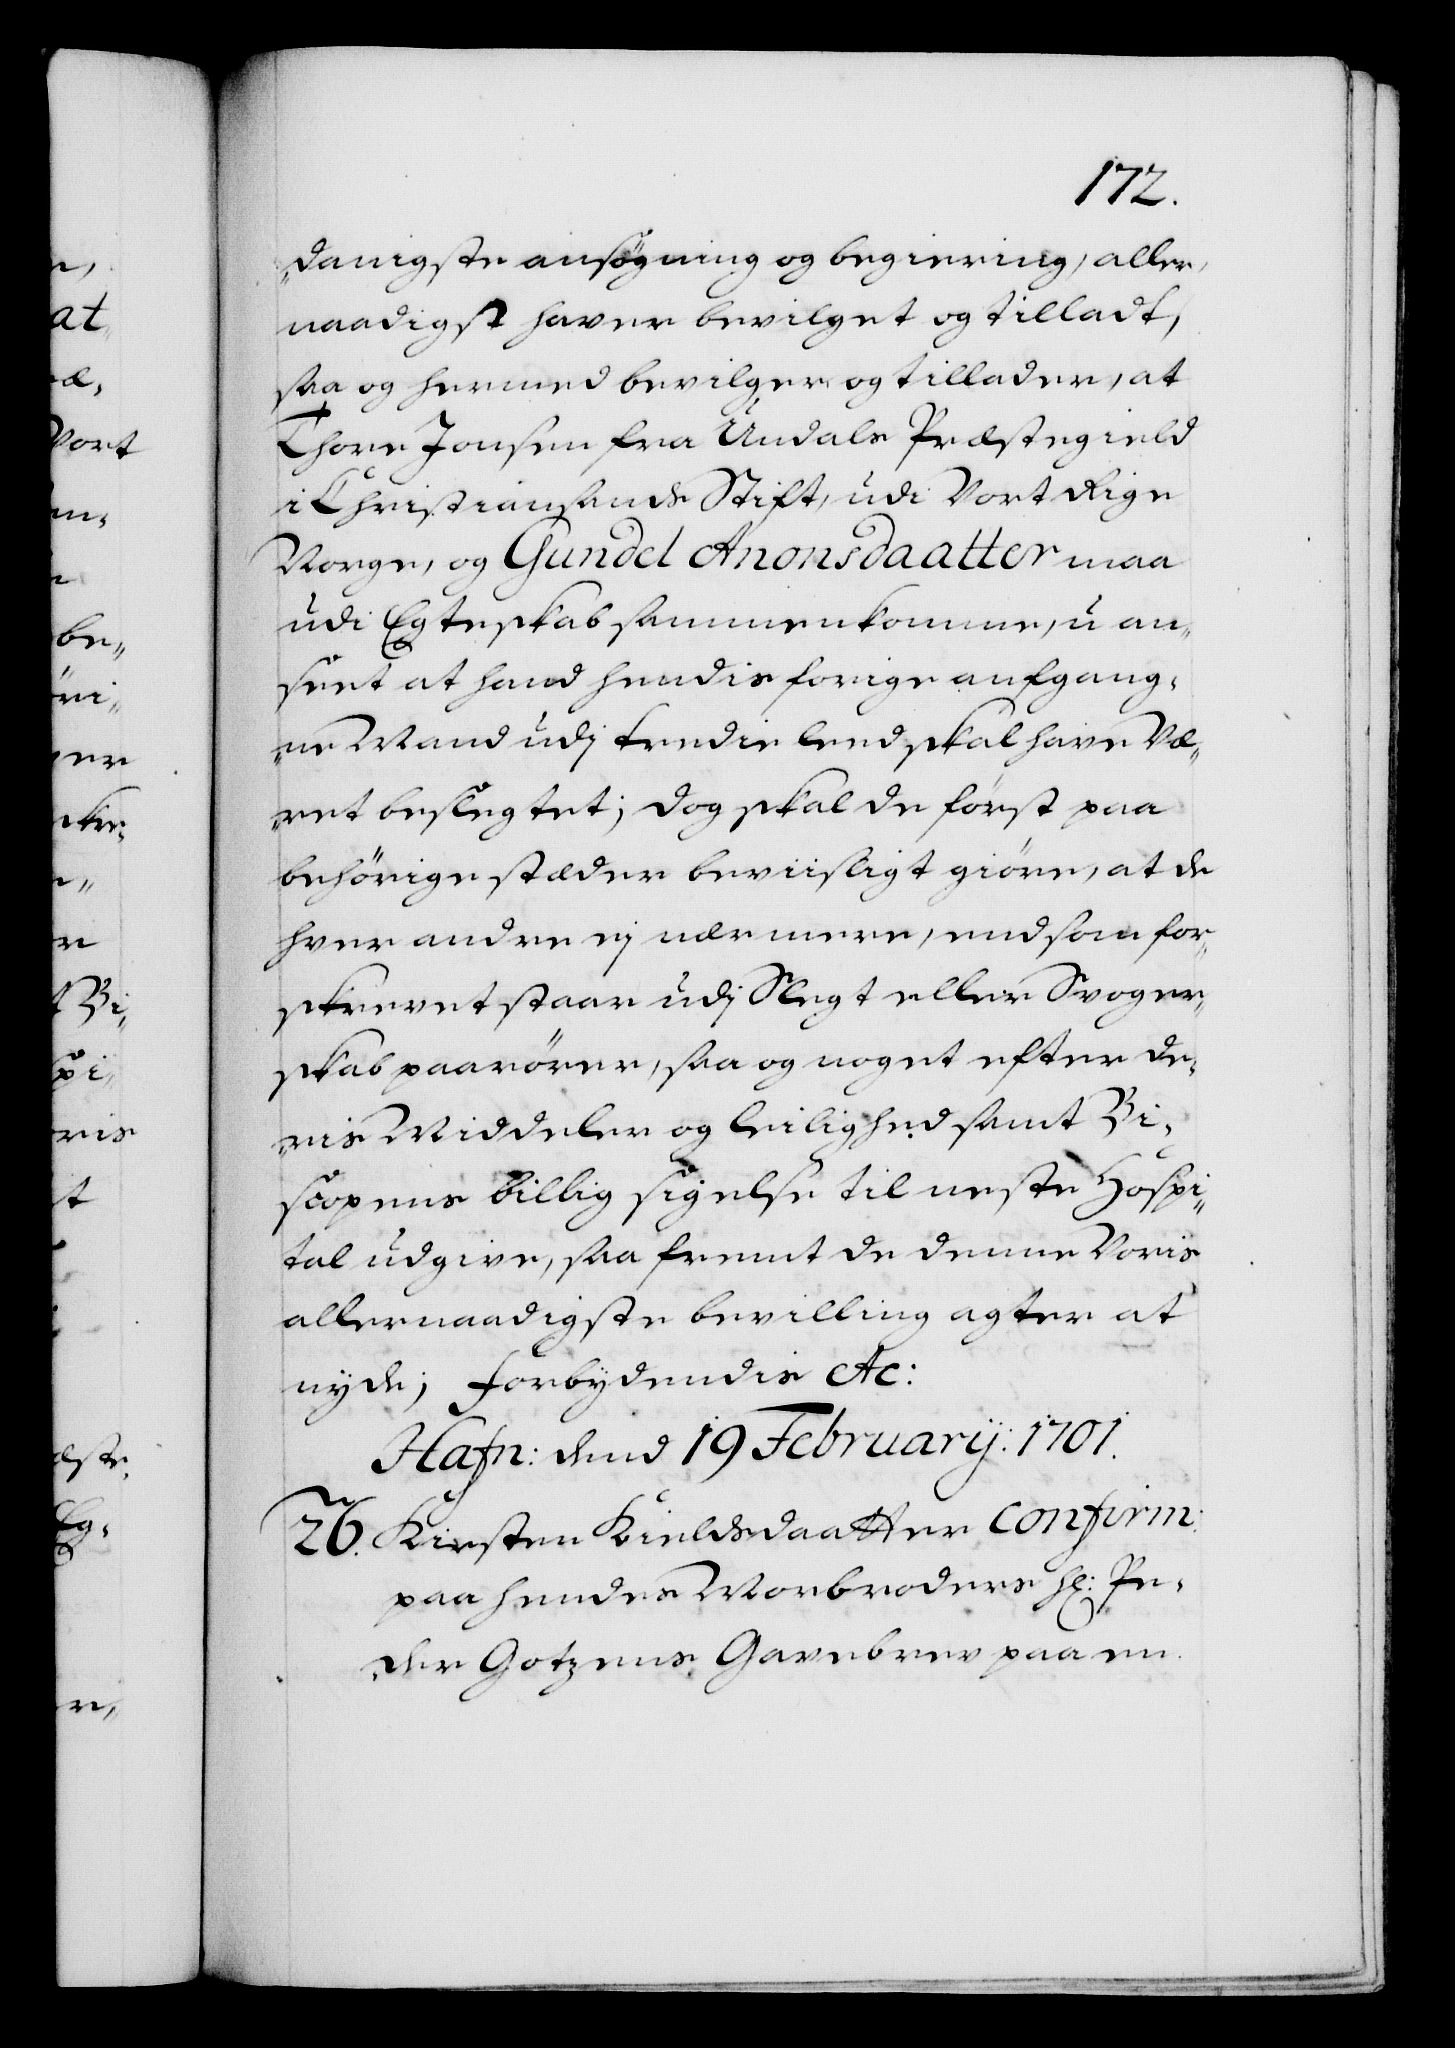 172.
„danigste ansøgning og begiering, aller,
naadigst haver bevilget og tilladt,
saa og hermed bevilger og tillader, at
Thore Jonsen fra Undals Præstegield
i Christiansands Stift, udi Vort Rige
Norge, og Gundel Anonsdaatter maa
udi Egteskab sammenkomme, u an,
seet at hand hendis forige aufgang,
„ne Mand udj tredie leed skal have Væ„
„ret beslegtet; dog skal de först paa
behörige stæder beviisligt giöre, at de
hver andre ej nærmere, end som for„
skrevet staar udj Slegt eller Svoger„
skab paarörer, saa og noget efter de„
„ris Middeler og leilighed samt Bi„
scopens billig sigelse til neste Hospi„
tal udgive, saa fremt de denne Voris
allernaadigste bevilling agter at
nyde; forbydendis &c:
Hafn: dend 19 February: 1701.
26. Kirsten Kieldsdaatter confirm:
paa hendes Morbroders hl: Pe„
„der Gotzens Gavebrev paa en
at
Vort
be„
öri„
Bi„
spi„
oris
st
Eg„